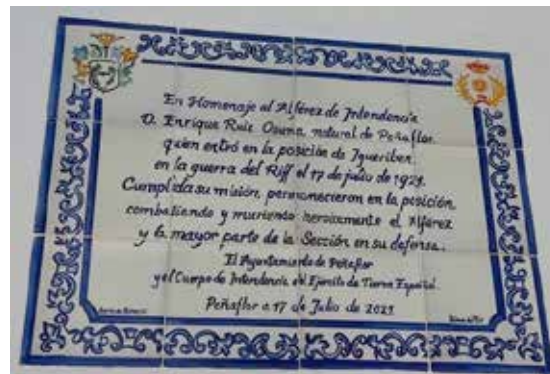 En Homenaje al Alférez de Intendencia
D. Enrique Ruiz Osuna, natural de Peñaflor,
quien entró en la posición de Igueriben,
en la guerra del Riff el 17 de julio de 1921.
Cumplida su misión, permanecieron en la posición,
combatiendo y muriendo heroicamente el Alférez
y la mayor parte de la Sección en su defensa.
El Ayuntamiento de Peñaflor
y el Cuerpo de Intendencia del Ejército de Tierra Español.
Peñaflor a 17 de Julio de 2021